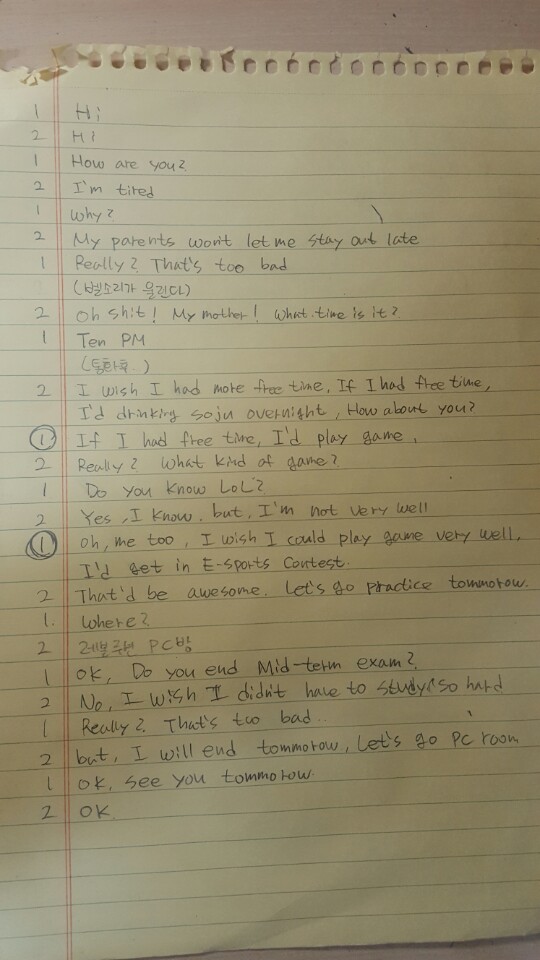 1 Hi
2 Hi
1 How are you?
2 I'm tired
1 Why?
2 My parents won't let me stay out late
1 Really? That's too bad
(벨소리가 울린다)
2 Oh shit! My mother! What time is it?
1 Ten PM
(통화후..)
2 I wish I had more free time, If I had free time,
I'd drinking soju overnight, How about you?
1 If I had free time, I'd play game.
2 Really? What kind of game?
1 Do you know LoL?
2 Yes, I know. but, I'm not very well
1 Oh, me too, I wish I could play game very well.
I'd get in E-sports Contest.
2 That'd be awesome. Let's go practice tommorow.
1. Where?
2 PC방
1 OK, Do you end Mid-term exam?
2 No, I wish I didn't have to study so hard
1 Really? That's too bad..
2 but, I will end tommorow, Let's go PC room
1 OK, see you tommorow.
2 OK.